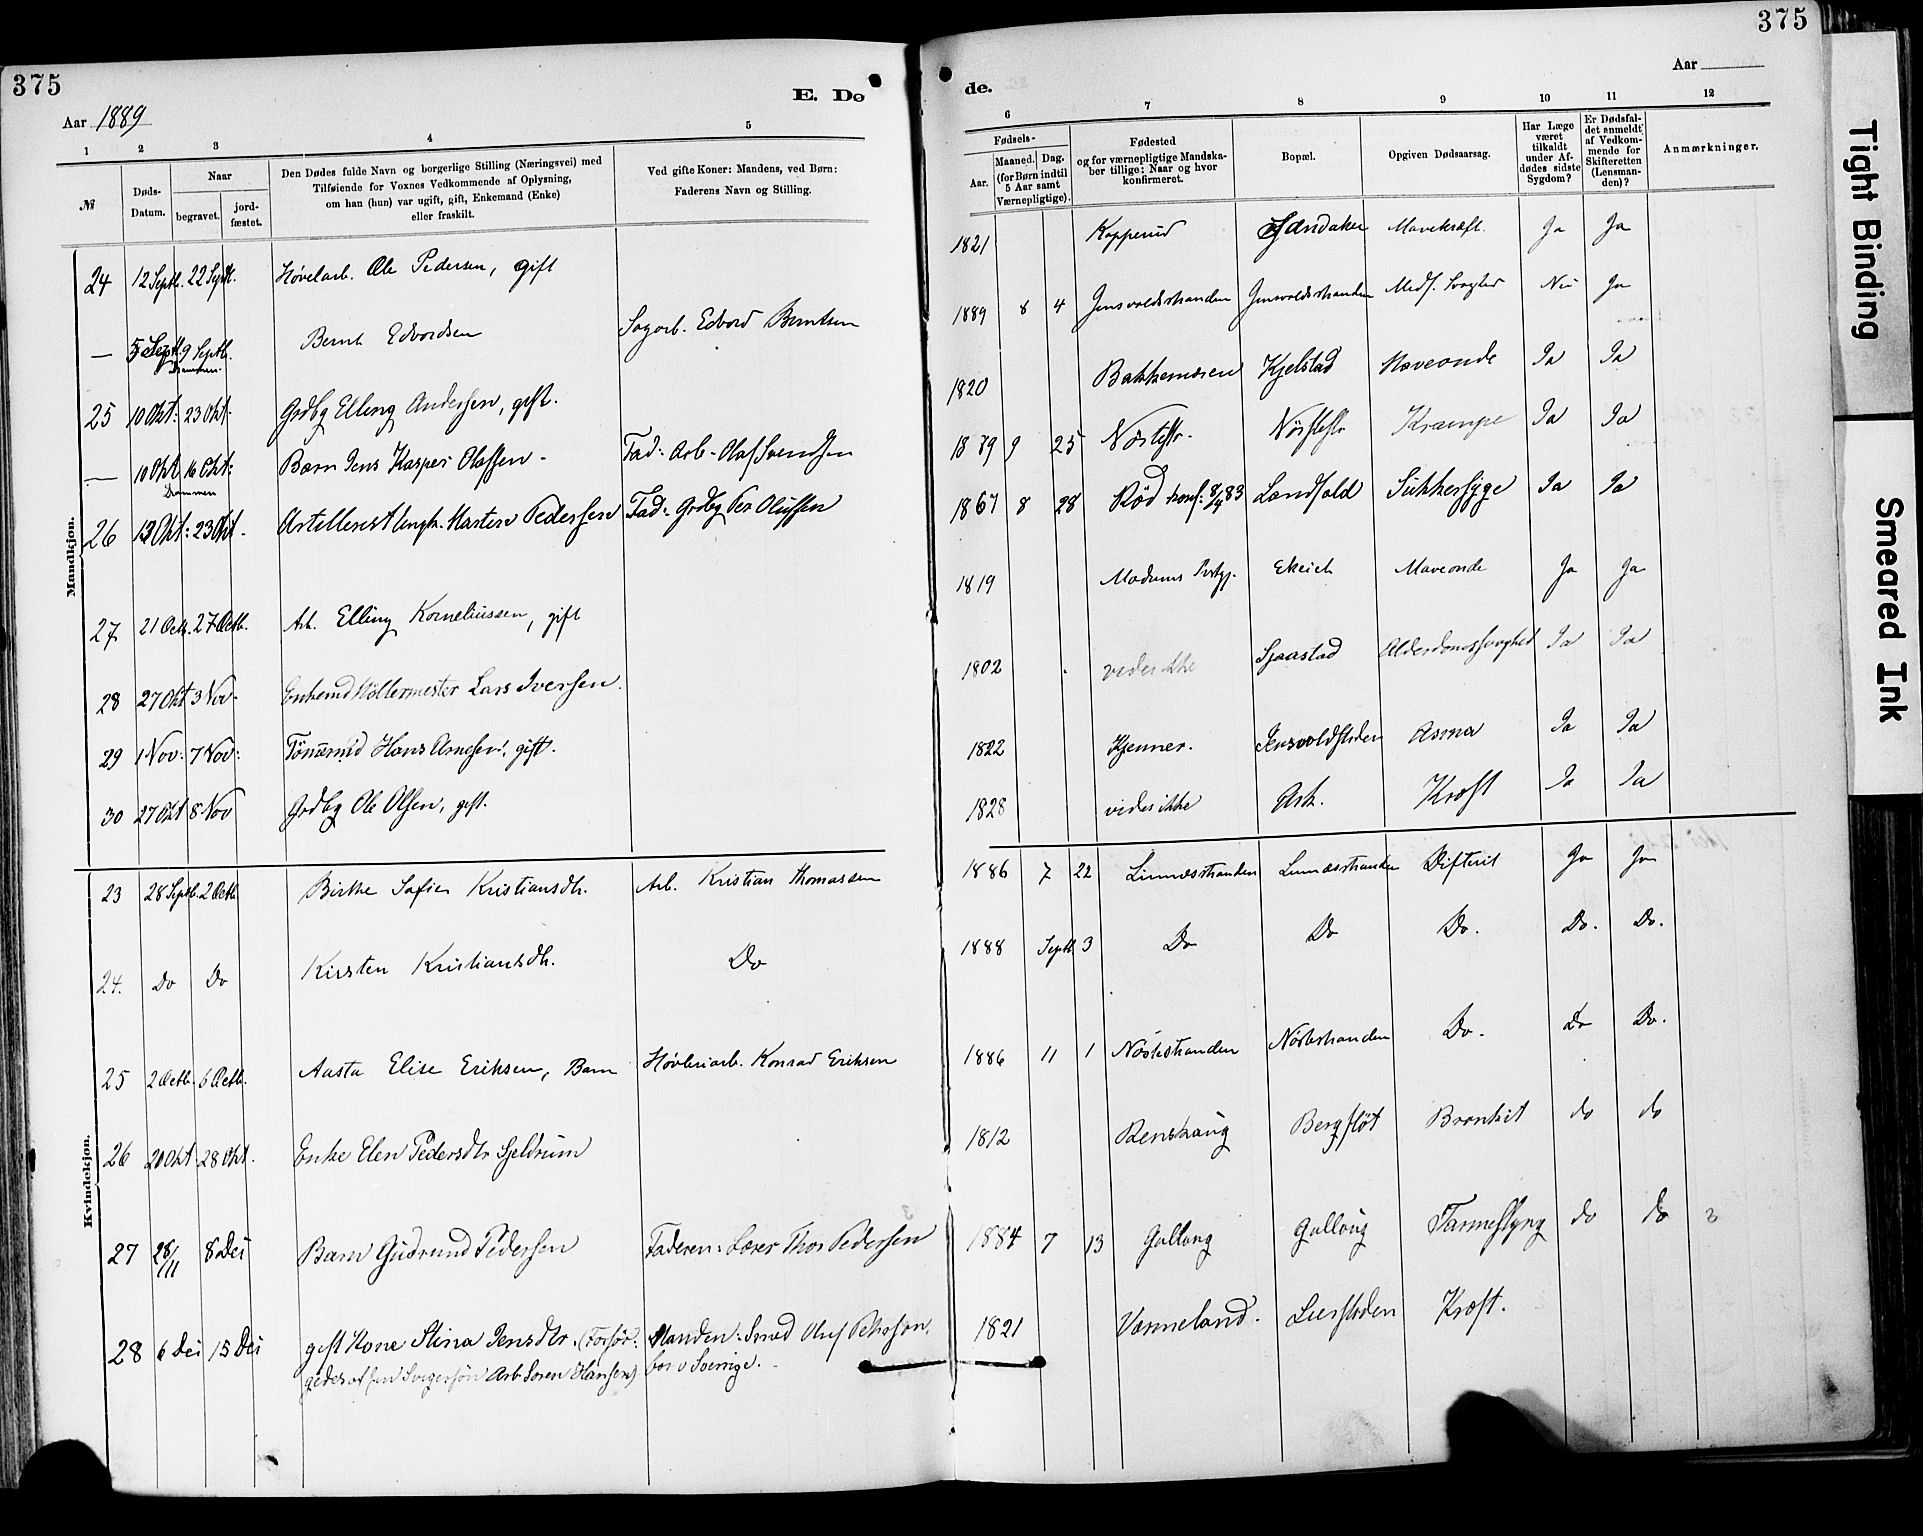 375
E. Dø
Aar 1889
1 2 3 4 5
№
Døds-
Datum.
Naar
begravet.
jord-
fæstet.
Den Dødes fulde Navn og borgerlige Stilling (Næringsvei) med
Tilføiende for Voxnes Vedkommende af Oplysning,
om han (hun) var ugift, gift, Enkemand (Enke)
eller fraskilt.
Ved gifte Koner: Mandens, ved Børn:
Faderens Navn og Stilling.
Mandkjøn.
24 12 Septb. 22 Septb. Høvelarb. Ole Pedersen, gift
— 5 Septb. 9 Septb. Bernt Edvardsen Sagarb. Edvard Berntsen
Drammen.
25 10 Okt: 23 Okt. Grdbg Elling Andersen, gift.
— 10 Okt 16 Okt: Barn Jens Kasper Olafsen - Fad: Arb. Olaf Svendsen
Drammen
26 13 Okt: 23 Okt. Martin Pedersen Fad: Grdbg Per Olufsen
27 21 Octb. 27 Octb. Arb. Elling Korneliussen, gift
28 27 Okt 3 Nov. Enkemd Møllermester Lars Iversen.
29 1 Nov: 7 Nov: Hans Arnesen, gift.
30 27 Okt 8 Nov Grdbg Ole Olsen, gift.
Kvindekjøn.
23 28 Septb. 2 Octb. Birthe Sofie Kristiansdh. Arb. Kristian Thomassen
24. Do Do Kirsten Kristiansdh. Do
25 2 Octb. 6 Octb. Aasta Elise Eriksen, Barn Høvleriarb. Konrad Eriksen
26 20 Okt 28 Okt. Enke Elen Pedersdtr Gjeldrum
27 28/11 8 Dei Barn Gudrund Pedersen Faderen: Lærer Thor Pedersen
28 6 Dei 15 Dei gift Kone Stina Jensdtr. (Forsør- Manden: Smed Oluf Pehrsson,
gedes af sin Svigersøn Arb Søren Hansen) bor i Sverrige.
375
de.
Aar
6 7 8 9 10 11 12
Fødsels-
Aar.
Maaned. Dag.
(for Børn indtil
5 Aar samt
Værnepligtige).
Fødested
og for værnepligtige Mandska-
ber tillige: Naar og hvor
konfirmeret.
Bopæl.
Opgiven Dødsaarsag.
Har Læge
været
tilkaldt
under Af-
dødes sidste
Sygdom?
Er Dødsfal-
det anmeldt
af Vedkom-
mende for
Skifteretten
(Lensman-
den)?
Anmærkninger.
1821 Kopperud Sandaker Mavekræft. Ja Ja
1889 8 4 Jensvoldstranden Jensvoldstranden Medf. Svaghed Nei Ja
1820 Bakkenæsen Kjelstad Maveonde Ja Ja
1879 9 25 Nøstestr. Nøstestr Krampe Ja Ja
1867 8 28 Rød konf: 8/4 83 Landfald Sukkersyge Ja Ja
1819 Modums Prstgj. Ekeich Maveonde Ja Ja
1802 vides ikke Sjaastad Alderdomssvaghed Ja Ja
1822 Kjenner. Asma Ja Ja
1828 vides ikke Ask. Kræft Ja Ja
1886 7 22 Linnæsstranden Linnæsstranden Difterit Ja Ja
1888 Septb 3 Do Do Do. Do. Do.
1886 11 1 Nøstestranden Nøstestranden Do. Do Do.
1812 Renskaug Bergfløt Bronkit do do
1884 7 13 Gallaug Gallaug Tarmeslyng do do
1821 Værmeland. Lierstraden Kræft.
Tight Binding
Smeared Ink